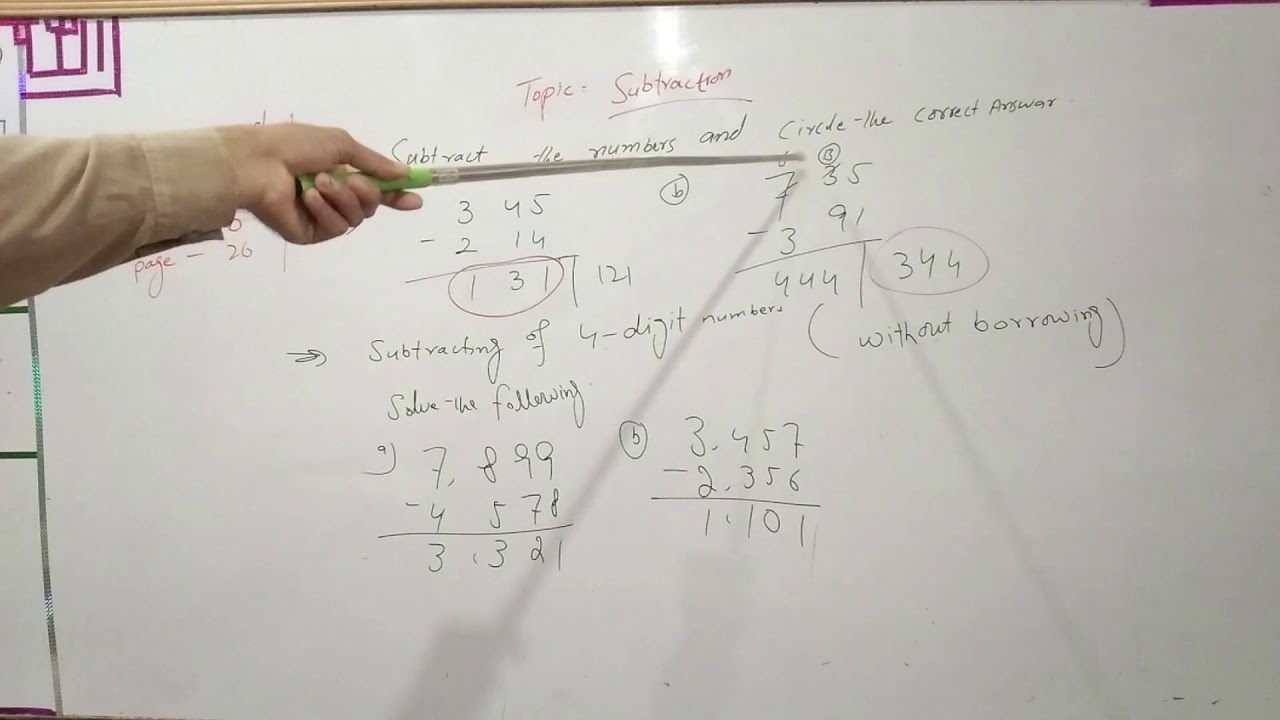 Topic: Subtraction
Subtract the numbers and Circle the correct Answar
3 45
- 2 14
1 31 | 121
b 6 13
7 35
- 3 91
444 | 344
page - 26
⇒ Subtracting of 4-digit numbers (without borrowing)
Solve the following
a) 7,899
- 4 578
3,321
b 3,457
- 2,356
1,101